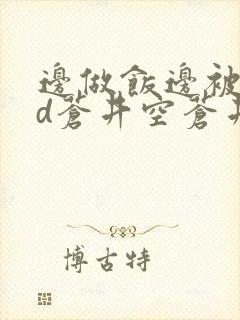 邊做飯邊被
d蒼井空蒼井
博古特